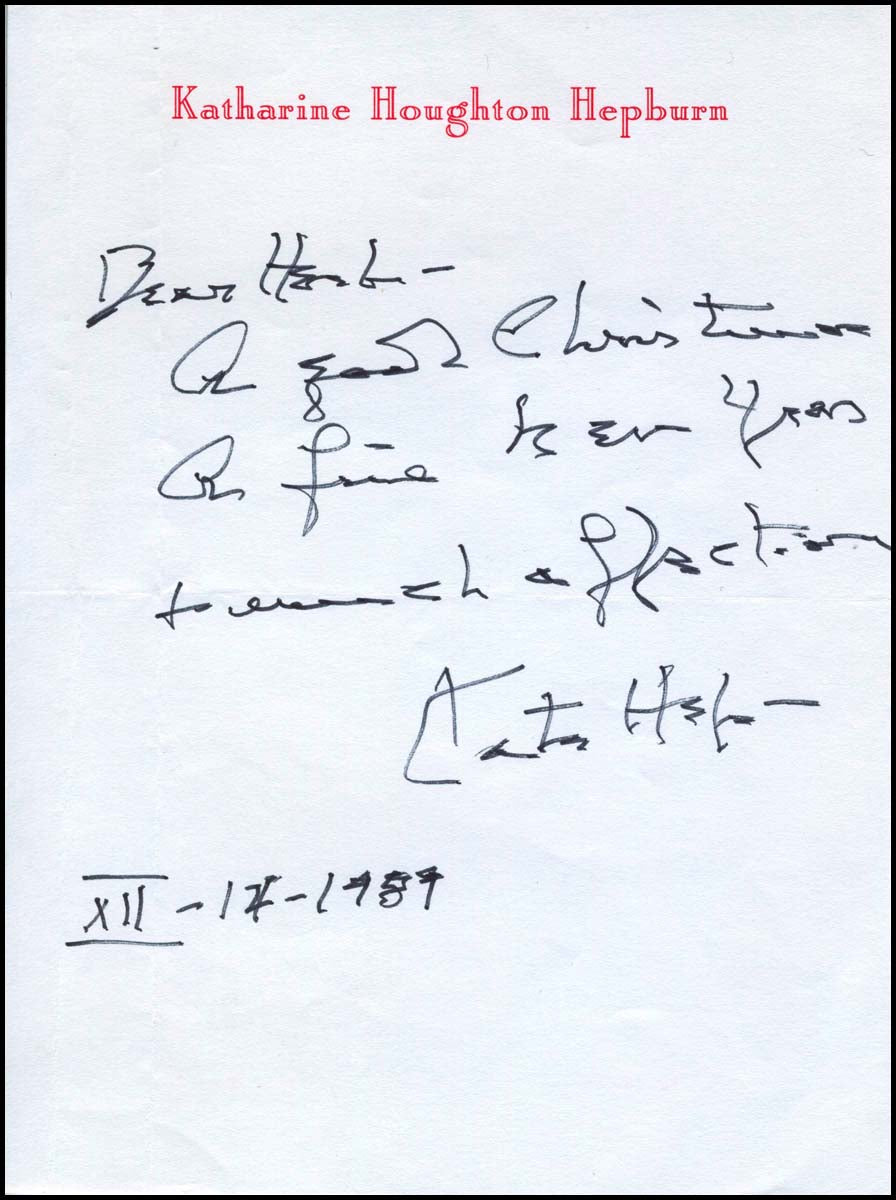 Katharine Houghton Hepburn
Dear
A good Christmas
A fine New Year
+ much affection
Kate Hep—
XII - 1989